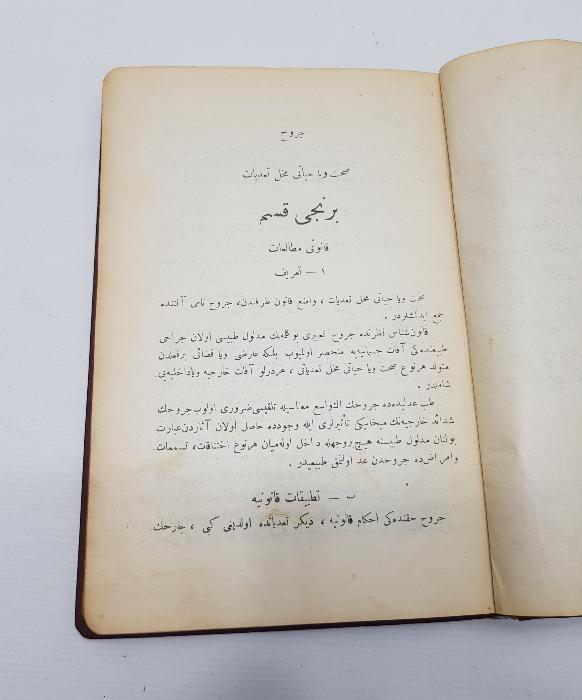 جروح
صحت ویا حیاتی مخل تعدیات
برنجی قسم
قانونی مطالعات
١ — تعریف
صحت ویا حیاتی مخل تعدیات ، واضع قانون طرفندن، جروح نامی آلتنده
جمع ایدلمشلردر .
قانون‌شناس نظرنده جروح تعبیری بو کلمه‌نك مدلول طبیسی اولان جراحی
طبیده‌کی آفات جسمانیه‌یه منحصر اولمیوب بلکه عارضی ویا قضائی برفعلدن
متولد هرنوع صحت ویا حیاتی مخل تعدیاتی ، هردرلو آفات خارجیه ویاداخلیه‌یی
شاملدر .
طب عدلیده‌ده جروحك اك‌واسع معناسیله تلقیسی ضروری اولوب جروحك
شدائد خارجیه‌نك میخانیکی تأثیرلری ایله وجودده حاصل اولان آثاردن‌عبارت
بولنان مدلول طبیسنه هیچ بروجهله داخل اوله‌میان هرنوع اختناقات، تسممات
وامراض‌ده جروحدن عد اولنمق طبیعیدر .
ب — تطبیقات قانونیه
جروح حقنده‌کی احکام قانونیه ، دیکر تعدیاتده اولدیغی کبی ، جارحك